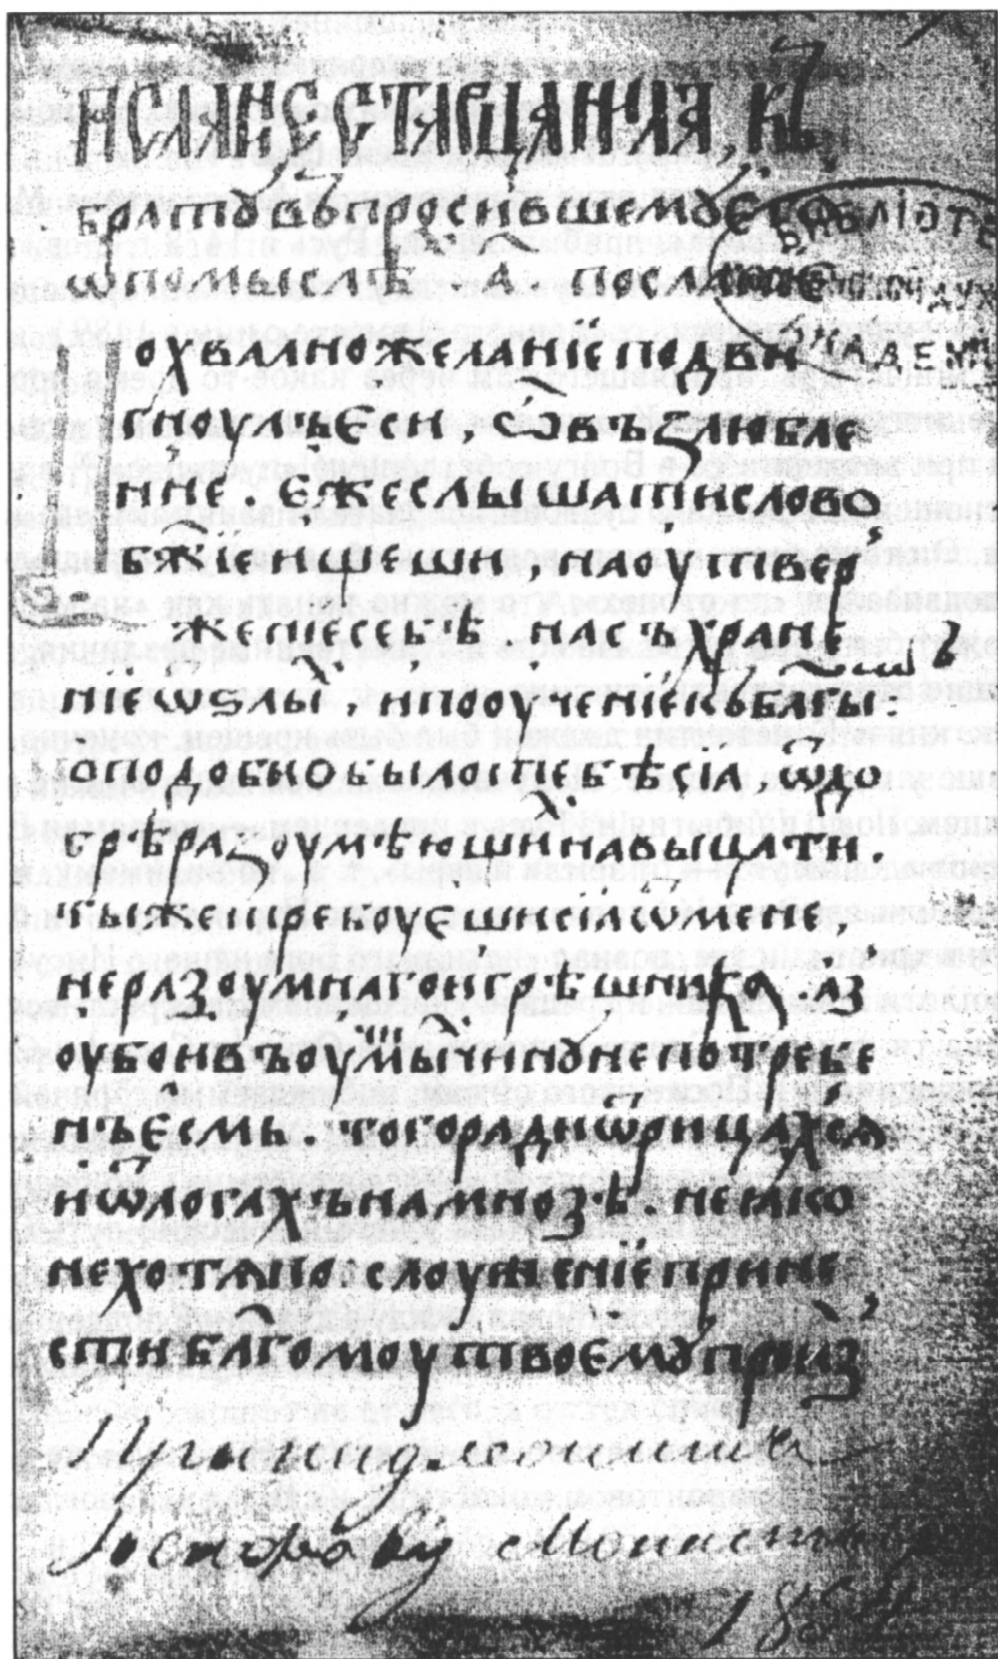 ПСАНІЕ СТАРЦА НИЛА, КЪ
БРАТꙊ ВЪПРОСИВШЕМꙊ ЕГѠ
ѿ ПОМЫСЛѢ҃ . А҃ . ПОСЛАНІЕ
БИБЛІОТЕ
АКАДЕМІИ
ПОХВАЛНО ЖЕЛАНЇЕ ПОДВИ
ГНОУЛЪ ЕСИ, Ѡ҆ ВЪЗЛЮБЛЕ
ННЕ . ЕЖЕ СЛЫШАТИ СЛОВО
БЖ҃ЇЕ ИЩЕШИ, НА ОУТВЕР
ЖЕНІЕ СЕБѢ НА СЪХРАНЕ
НЇЕ Ѿ ЅЛЫ҃ , И ПООУЧЕНЇЕ КЪ БЛГ҃Ы :
ПОДОБНО БЫЛО И ТЕБѢ СІА, Ѿ ДО
БРѢ РАЗОУМѢЮЩИ НАВЫЦАТИ .
ТЫ ЖЕ ТРЕБОУЕШИ СІА Ѿ МЕНЕ,
НЕРАЗОУМНАГО И ГРѢШНИКА . АЗ
ОУБО И ВЪ ОУЧИМЫ ЧИНꙊ НЕПОТРЕБЕ
НЪ ЕСМЬ . ТОГО РАДИ ѾРИЦАХСѦ
И ѾЛАГАХЪ НАМНОЗѢ . НЕ ІАКО
НЕ ХОТѦ ПО СЛОУЖЕНЇЕ ПРИНЕ
СТИ БЛГ҃ОМОУ ТВОЕМꙊ ПРОИЗ
Принадлежитъ
Іосифову Монасты
1854